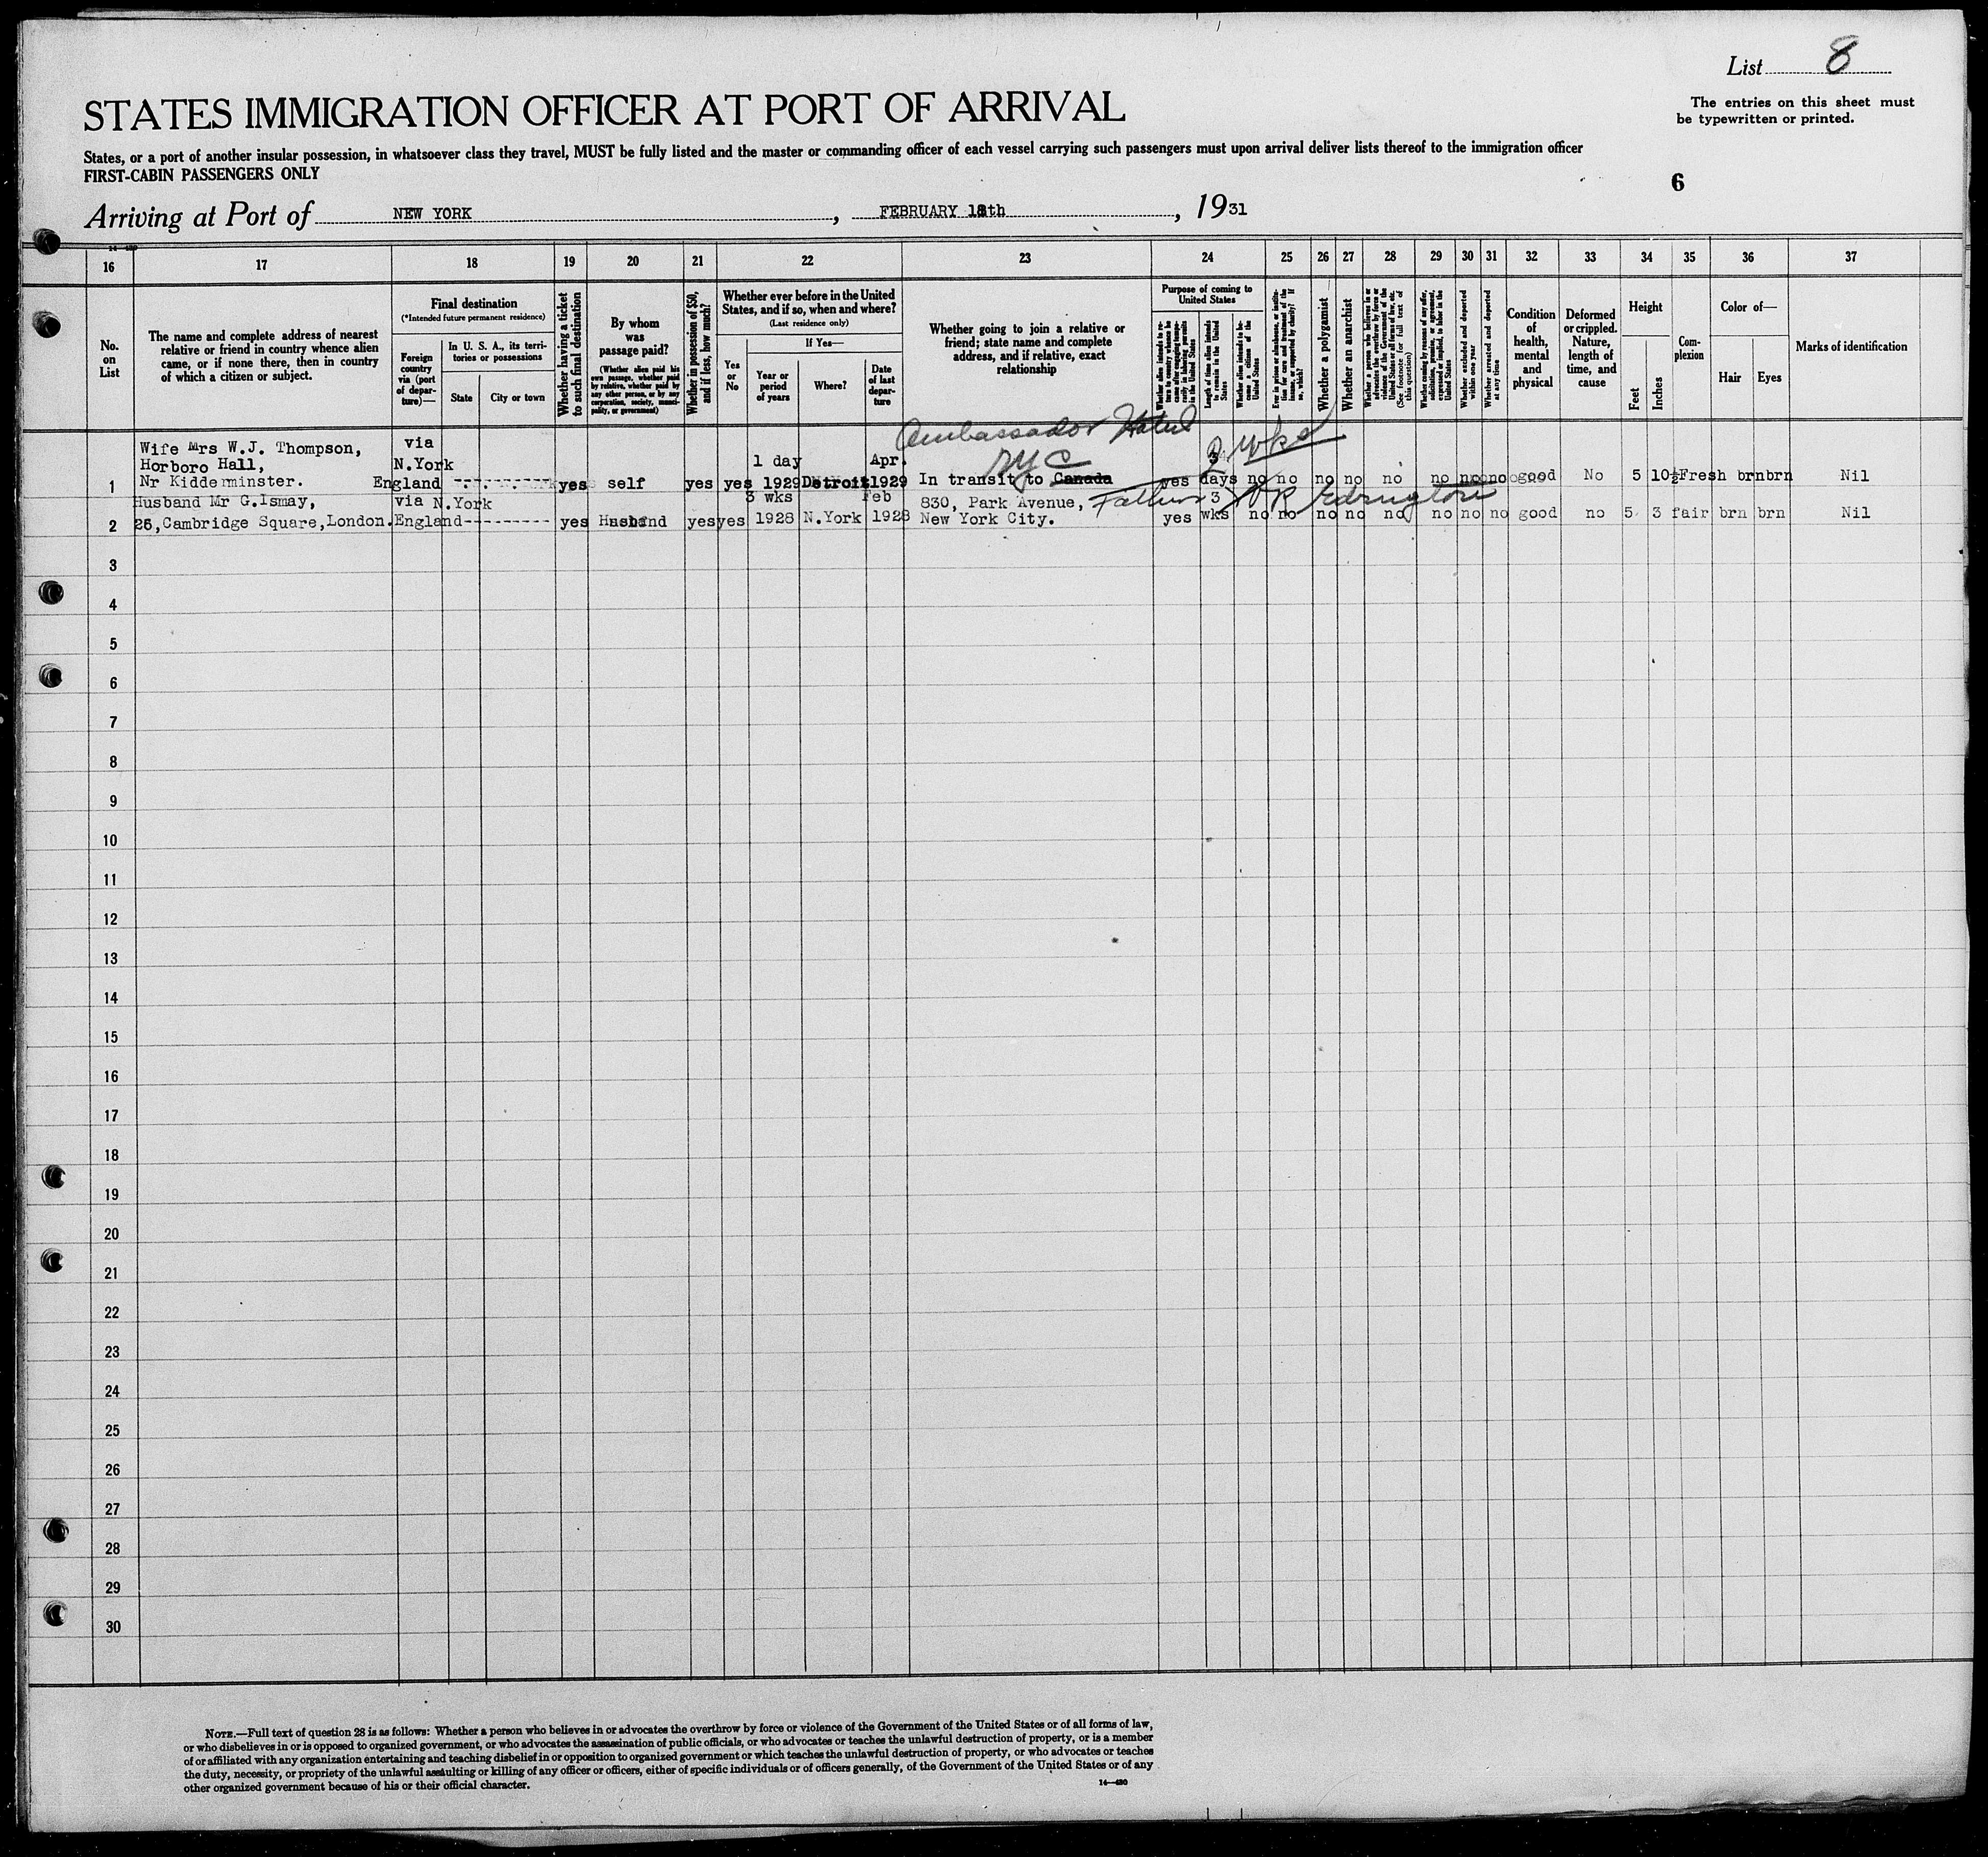 List 8
STATES IMMIGRATION OFFICER AT PORT OF ARRIVAL
The entries on this sheet must
be typewritten or printed.
States, or a port of another insular possession, in whatsoever class they travel, MUST be fully listed and the master or commanding officer of each vessel carrying such passengers must upon arrival deliver lists thereof to the immigration officer
FIRST-CABIN PASSENGERS ONLY
6
Arriving at Port of NEW YORK, FEBRUARY, 1931
16 17 18 19 20 21 22 23 24 25 26 27 28 29 30 31 32 33 34 35 36 37
No.
on
List
The name and complete address of nearest
relative or friend in country whence alien
came, or if none there, then in country
of which a citizen or subject.
Final destination
(*Intended future permanent residence)
Foreign
country
via (port
of depar-
ture)—
In U. S. A., its terri-
tories or possessions
State
City or town
Whether having a ticket
to such final destination
By whom
was
passage paid?
(Whether alien paid his
own passage, whether paid
by relative, whether paid by
any other person, or by any
corporation, society, munici-
pality, or government)
Whether in possession of $50,
and if less, how much?
Whether ever before in the United
States, and if so, when and where?
(Last residence only)
Yes
or
No
If Yes—
Year or
period
of years
Where?
Date
of last
depar-
ture
Whether going to join a relative or
friend; state name and complete
address, and if relative, exact
relationship
Purpose of coming to
United States
Whether alien intends to re-
turn to country whence he
came after engaging tempo-
rarily in laboring pursuits
in the United States
Length of time alien intends
to remain in the United
States
Whether alien intends to be-
come a citizen of the
United States
Ever in prison or almshouse, or institu-
tion for care and treatment of the
insane, or supported by charity? If
so, which?
Whether a polygamist
Whether an anarchist
Whether a person who believes in or
advocates the overthrow by force or
violence of the Government of the
United States or all forms of law, etc.
(See footnote for full text of
this question)
Whether coming by reason of any offer,
solicitation, promise, or agreement,
expressed or implied, to labor in the
United States
Whether excluded and deported
within one year
Whether arrested and deported
at any time
Condition
of
health,
mental
and
physical
Deformed
or crippled.
Nature,
length of
time, and
cause
Height
Feet
Inches
Com-
plexion
Color of—
Hair
Eyes
Marks of identification
Ambassador Hotel
NYC
2 wks
Wife Mrs W.J. Thompson, via
Horboro Hall, N.York 1 day Apr.
1 Nr Kidderminster. England yes self yes yes 1929 Detroit 1929 In transit to Canada yes days no no no no no no no no good No 5 10½ Fresh brn brn Nil
Husband Mr G.Ismay, via N.York 3 wks Feb 830, Park Avenue, Father 3 Edrington
2 26,Cambridge Square,London. England--------- yes Husband yes yes 1928 N.York 1928 New York City. yes wks no no no no no no no no good no 5 3 fair brn brn Nil
3
4
5
6
7
8
9
10
11
12
13
14
15
16
17
18
19
20
21
22
23
24
25
26
27
28
29
30
NOTE.—Full text of question 28 is as follows: Whether a person who believes in or advocates the overthrow by force or violence of the Government of the United States or of all forms of law,
or who disbelieves in or is opposed to organized government, or who advocates the assassination of public officials, or who advocates or teaches the unlawful destruction of property, or is a member
of or affiliated with any organization entertaining and teaching disbelief in or opposition to organized government or which teaches the unlawful destruction of property, or who advocates or teaches
the duty, necessity, or propriety of the unlawful assaulting or killing of any officer or officers, either of specific individuals or of officers generally, of the Government of the United States or of any
other organized government because of his or their official character.
14—430